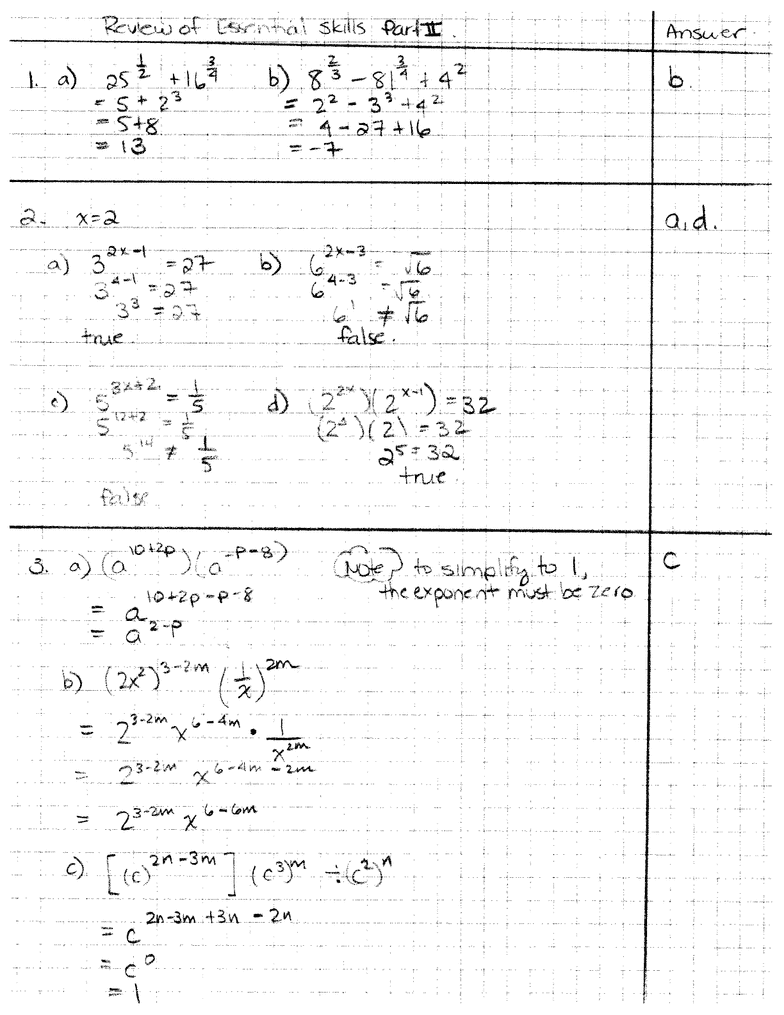 Review of Essential Skills Part II.
Answer
1. a) 25^(1/2) + 16^(3/4)
= 5 + 2^3
= 5+8
= 13
b) 8^(2/3) - 81^(3/4) + 4^2
= 2^2 - 3^3 + 4^2
= 4 - 27 + 16
= -7
b.
2. x=2
a) 3^(2x-1) = 27
3^(4-1) = 27
3^3 = 27
true
b) 6^(2x-3) = √6
6^(4-3) = √6
6^1 ≠ √6
false.
c) 5^(3x+2) = 1/5
5^(12+2) = 1/5
5^14 ≠ 1/5
false
d) (2^(2x))(2^(x-1)) = 32
(2^4)(2) = 32
2^5 = 32
true
a, d.
3. a) (a^(10+2p))(a^(-p-8))
= a^(10+2p-p-8)
= a^(2-p)
Note to simplify to 1,
the exponent must be zero
b) (2x^2)^(3-2m) (1/x)^(2m)
= 2^(3-2m) x^(6-4m) • 1/x^(2m)
= 2^(3-2m) x^(6-4m-2m)
= 2^(3-2m) x^(6-6m)
c) [(c)^(2n-3m)] (c^3)^m ÷ (c^2)^n
= c^(2n-3m+3n-2n)
= c^0
= 1
C